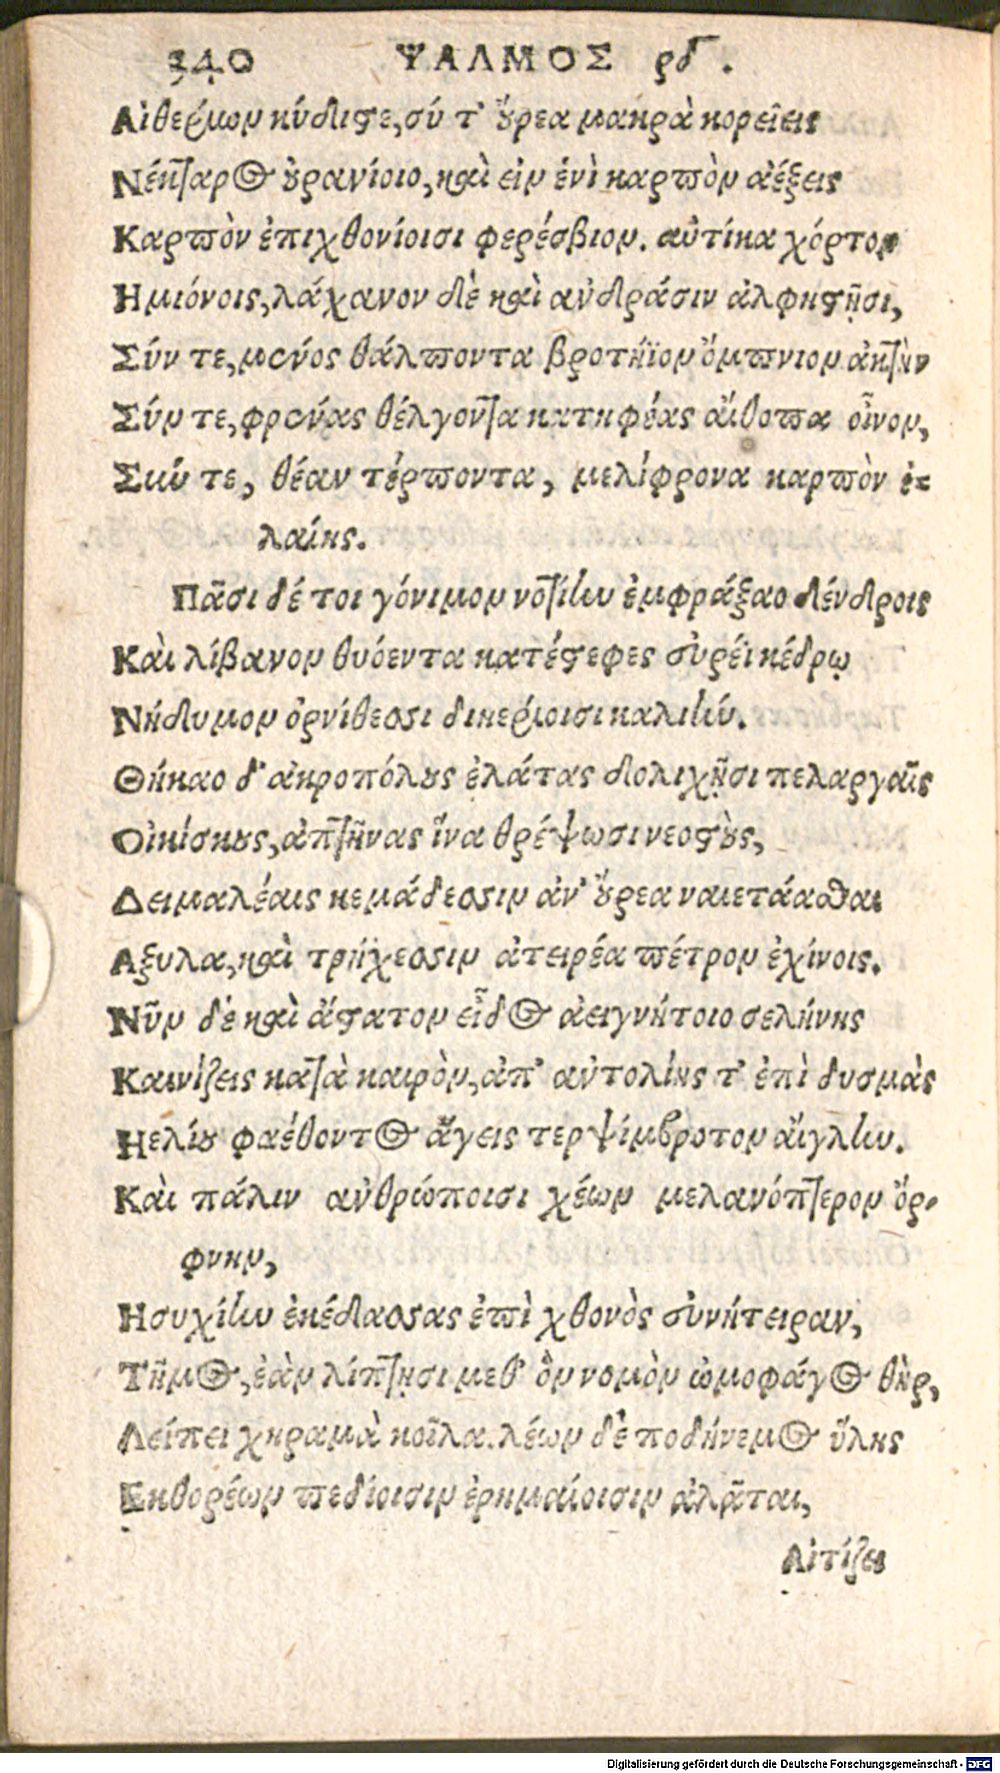 340 ΨΑΛΜΟΣ ρδ.
Αἰθερίων κύδιστε, σύ τ' οὔρεα μακρὰ κορεῖεις
Νέκταρος οὐρανίοιο, καὶ εἰν ἑνὶ καρπὸν ἀέξεις
Καρπὸν ἐπιχθονίοισι φερέσβιον. αὐτίκα χόρτον
Ημιόνοις, λάχανον δὲ καὶ ἀνδράσιν ἀλφηστῇσι,
Σύν τε, μένος θάλποντα βροτήϊον ὄμπνιον ἀκτὴν
Σύν τε, φρένας θέλγοντα κατηφέας αἴθοπα οἶνον,
Σύν τε, θέαν τέρποντα, μελίφρονα καρπὸν ἐ-
λαίης.
Πᾶσι δέ τοι γόνιμον νοτίην ἐμφράξαο δένδροις
Καὶ λίβανον θυόεντα κατέστεφες εὐρέϊ κέδρῳ
Νήδυμον ὀρνίθεσσι διηερίοισι καλιήν.
Θήκαο δ' ἀκροπόλους ἐλάτας δολιχῇσι πελαργαῖς
Οἰκίσκους, ἀπτῆνας ἵνα θρέψωσι νεοσσοὺς,
Δειμαλέαις κεμάδεσσιν ἀν' οὔρεα ναιετάασθαι
Αξυλα, καὶ τρηχέσσιν ἀτειρέα πέτρον ἐχίνοις.
Νῦν δὲ καὶ ἄστατον εἶδος ἀειγνήτοιο σελήνης
Καινίζεις κατὰ καιρὸν, ἀπ' αὐτολίης τ' ἐπὶ δυσμὰς
Ηελίου φαέθοντος ἄγεις τερψίμβροτον αἴγλην.
Καὶ πάλιν ἀνθρώποισι χέων μελανόπτερον ὄρ-
φνην,
Ησυχίην ἐκέδασσας ἐπὶ χθονὸς εὐνήτειραν,
Τῆμος, ἐὰν λίπτῃσι μεθ' ὃν νομὸν ὠμοφάγος θὴρ,
Λείπει χηραμὰ κοῖλα. λέων δὲ ποδήνεμος ὕλης
Εκθορέων πεδίοισιν ἐρημαίοισιν ἀλᾶται,
Αἰτίζει
Digitalisierung gefördert durch die Deutsche Forschungsgemeinschaft - DFG